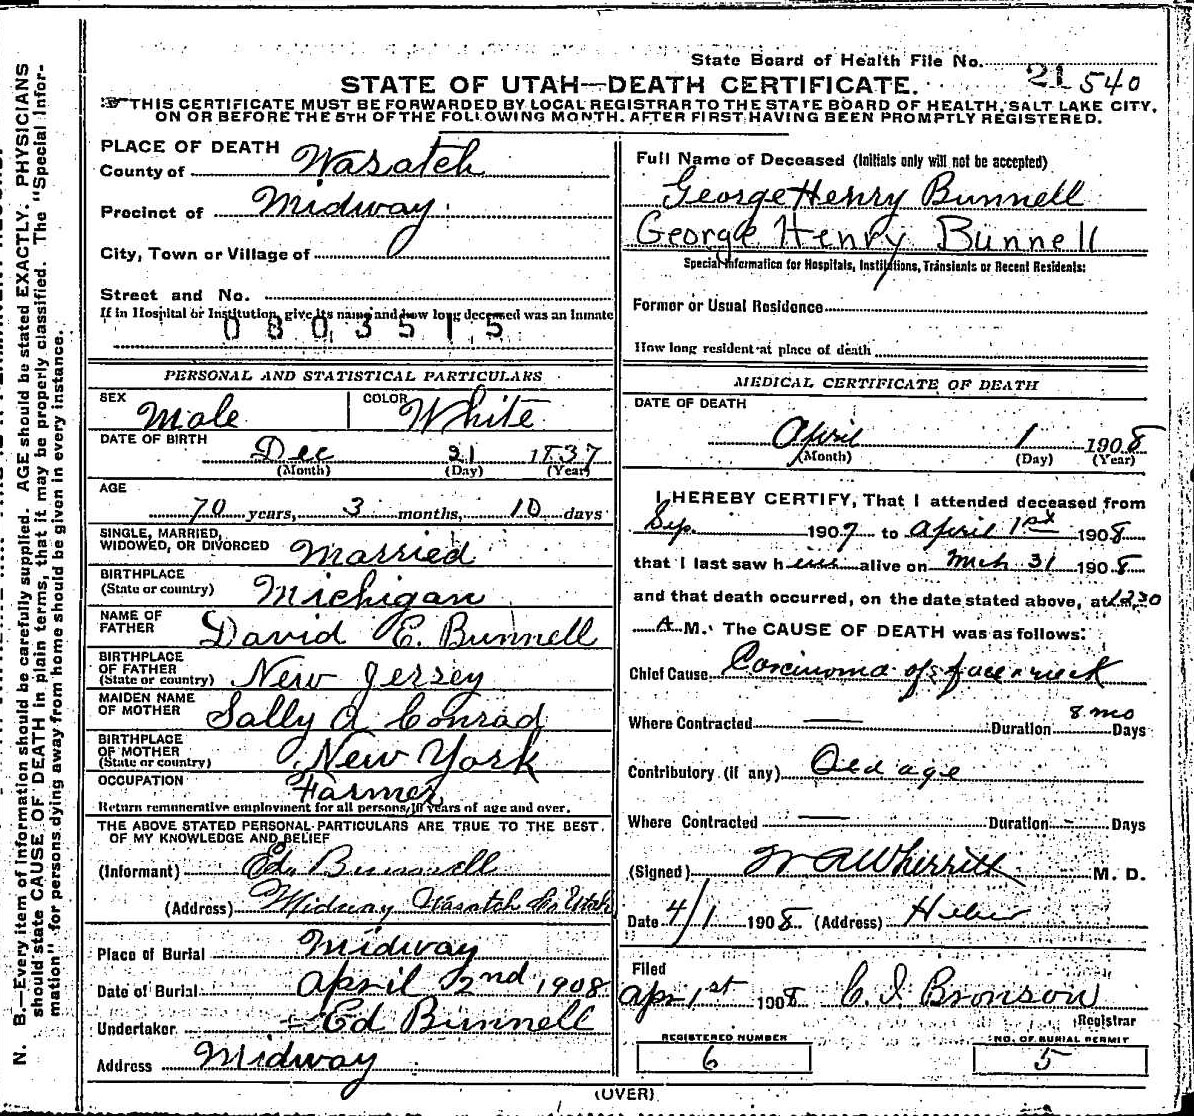 State Board of Health File No. 21 540
STATE OF UTAH—DEATH CERTIFICATE.
THIS CERTIFICATE MUST BE FORWARDED BY LOCAL REGISTRAR TO THE STATE BOARD OF HEALTH, SALT LAKE CITY,
ON OR BEFORE THE 5TH OF THE FOLLOWING MONTH. AFTER FIRST HAVING BEEN PROMPTLY REGISTERED.
PLACE OF DEATH
County of Wasatch
Precinct of Midway
City, Town or Village of
Street and No.
If in Hospital or Institution, give its name and how long deceased was an Inmate
0803515
PERSONAL AND STATISTICAL PARTICULARS
SEX Male COLOR White
DATE OF BIRTH Dec 21 1837
(Month) (Day) (Year)
AGE
70 years, 3 months, 10 days
SINGLE, MARRIED,
WIDOWED, OR DIVORCED Married
BIRTHPLACE
(State or country) Michigan
NAME OF
FATHER David E. Bunnell
BIRTHPLACE
OF FATHER
(State or country) New Jersey
MAIDEN NAME
OF MOTHER Sally A Conrad
BIRTHPLACE
OF MOTHER
(State or country) New York
OCCUPATION Farmer
Return remunerative employment for all persons, 10 years of age and over.
THE ABOVE STATED PERSONAL PARTICULARS ARE TRUE TO THE BEST
OF MY KNOWLEDGE AND BELIEF
(Informant) Ed. Bunnell
(Address) Midway Wasatch Co Utah
Place of Burial Midway
Date of Burial April 2nd 1908
Undertaker Ed Bunnell
Address Midway
Full Name of Deceased (Initials only will not be accepted)
George Henry Bunnell
George Henry Bunnell
Special Information for Hospitals, Institutions, Transients or Recent Residents:
Former or Usual Residence
How long resident at place of death
MEDICAL CERTIFICATE OF DEATH
DATE OF DEATH
April 1 1908
(Month) (Day) (Year)
I HEREBY CERTIFY, That I attended deceased from
Sep. 1907 to April 1st 1908
that I last saw him alive on Mch 31 1908
and that death occurred, on the date stated above, at 12:30
A M. The CAUSE OF DEATH was as follows:
Chief Cause Carcinoma of face & neck
Where Contracted — Duration 8 mo Days
Contributory (if any) Old age
Where Contracted — Duration - Days
(Signed) W A Wherritt M. D.
Date 4/1 1908 (Address) Heber
Filed
Apr 1st 1908 C. I. Bronson
Registrar
REGISTERED NUMBER
6
NO. OF BURIAL PERMIT
5
(OVER)
N. B.—Every item of information should be carefully supplied. AGE should be stated EXACTLY. PHYSICIANS
should state CAUSE OF DEATH in plain terms, that it may be properly classified. The "Special Infor-
mation" for persons dying away from home should be given in every instance.